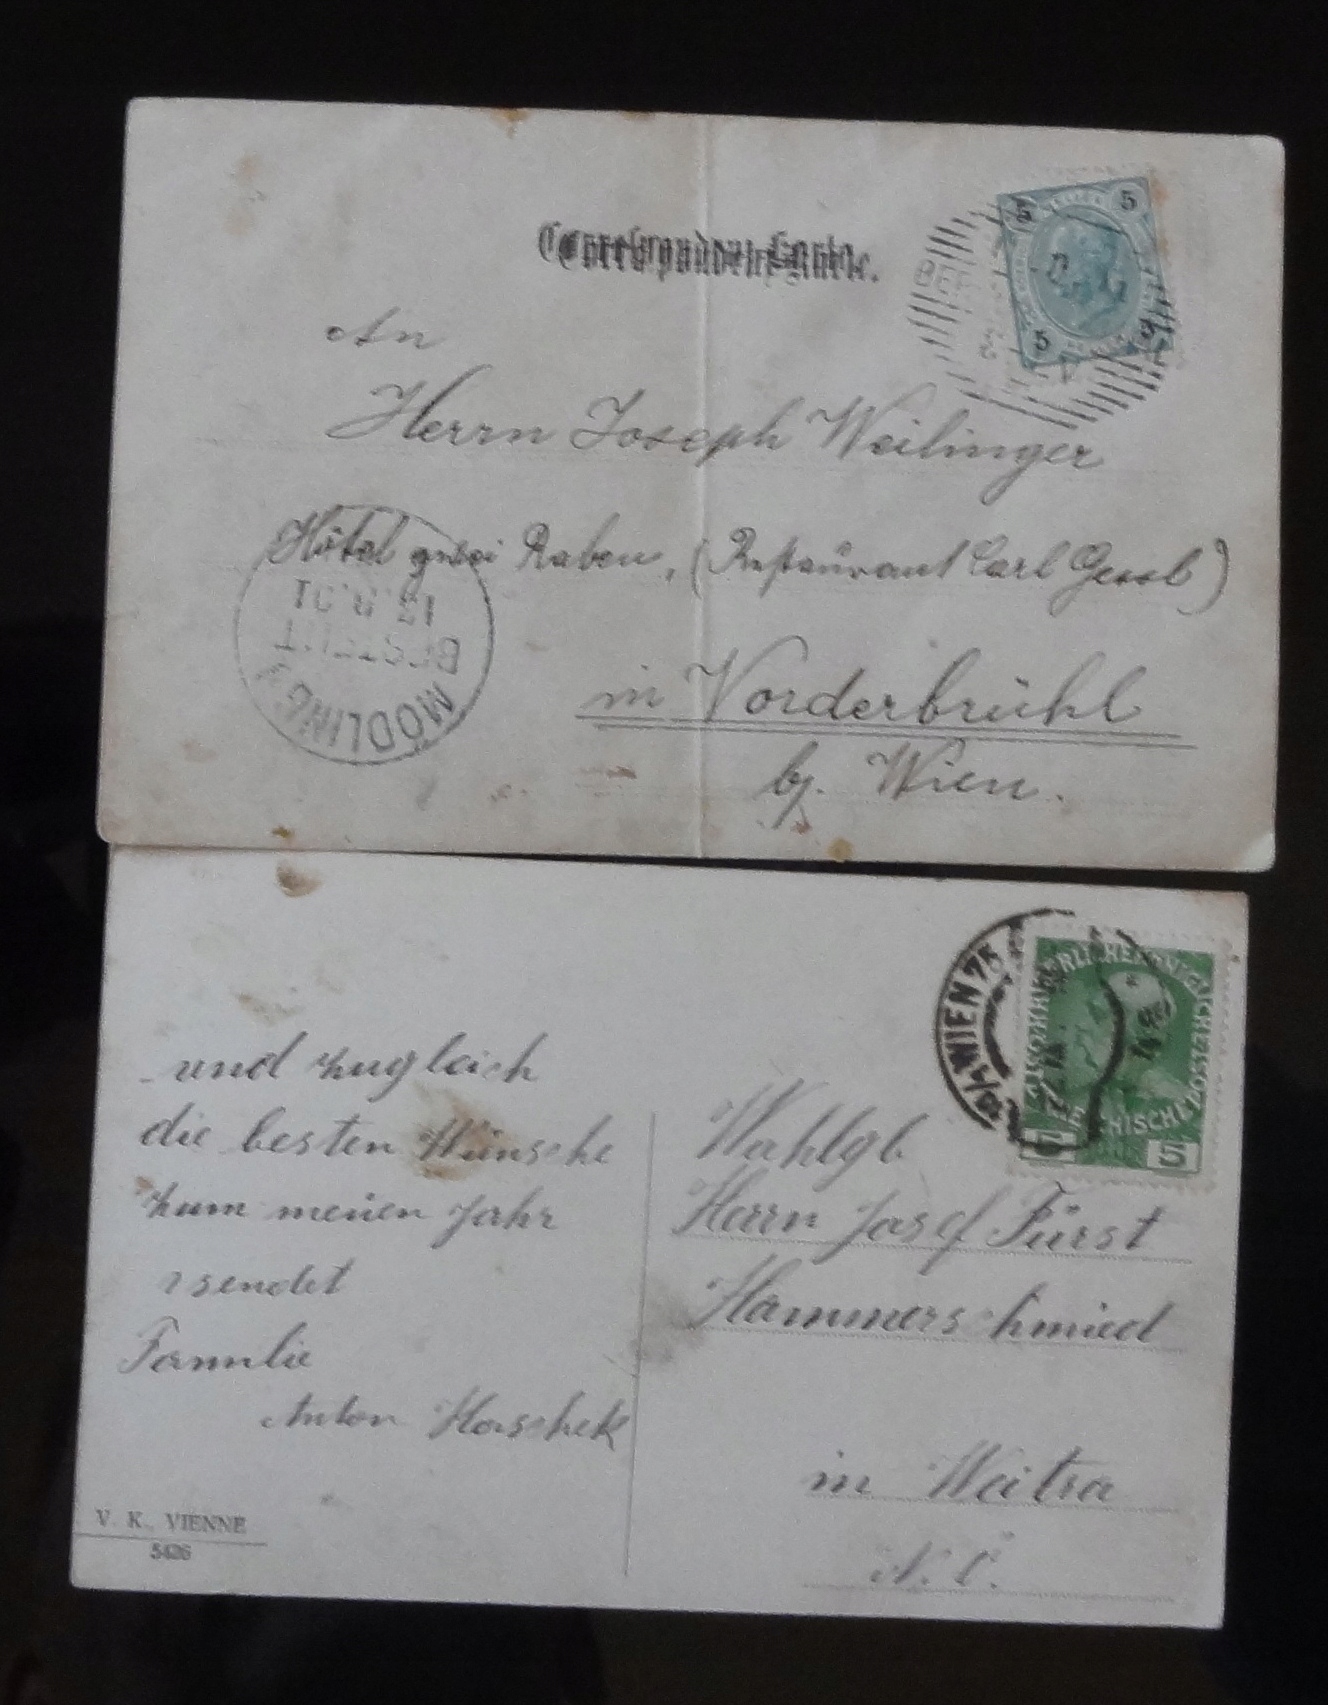 Correspondenz-Karte.
5 5
5
An
Herrn Joseph Weilinger
Hôtel zwei Raben, (Restaurant Carl Gessl)
in Vorderbrühl
bj. Wien.
BESTELLT
MÖDLING
WIEN 75
5
und zugleich
die besten Wünsche
zum neuen Jahr
sendet
Familie
Anton Haschek
V. K., VIENNE
5426
Wohlgb
Herrn Josef Fürst
Hammerschmied
in Weitra
N. Ö.